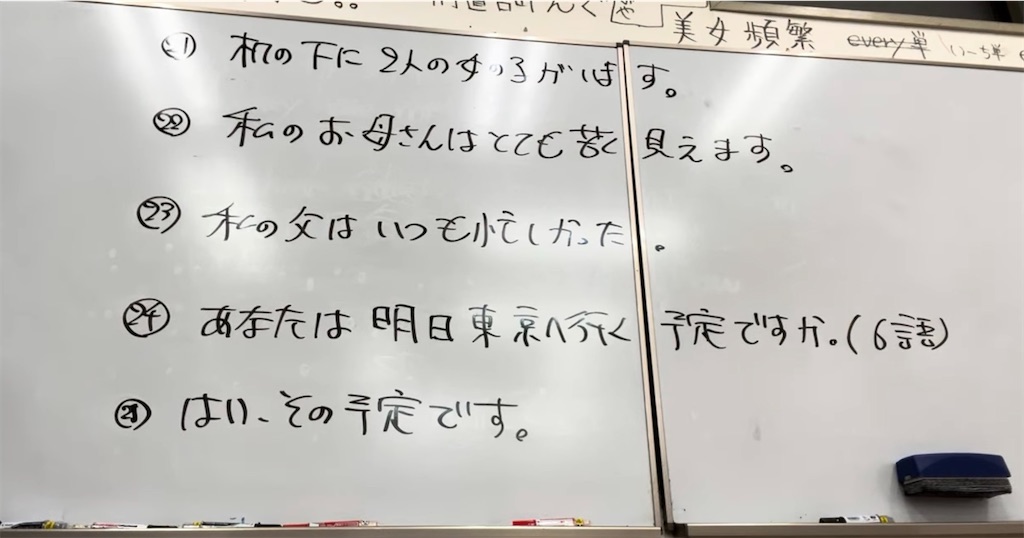 美女頻繁 every単 いーち単
㉑ 机の下に2人の女の子がいます。
㉒ 私のお母さんはとても若く見えます。
㉓ 私の父はいつも忙しかった。
㉔ あなたは明日東京へ行く予定ですか。(6語)
㉕ はい、その予定です。